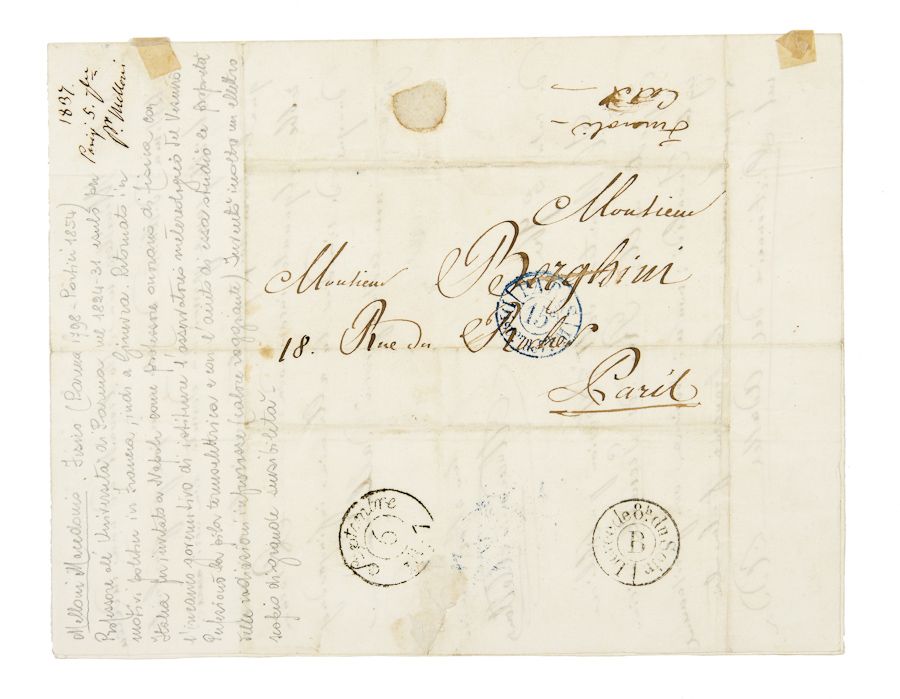 1837.
Parigi 5. 7bre
Pr. Melloni
Melloni Macedonio. Fisico (Parma 1798 - Portici 1854)
Professore alla Università di Parma nel 1824-31 esulò per
motivi politici in Francia, indi a Ginevra. Ritornato in
Italia fu invitato a Napoli come professore onorario di fisica con
l'incarico governativo di istituire l'osservatorio meteorologico del Vesuvio
la pila termoelettrica e con l'aiuto di essa studiò le proprietà
delle radiazioni infrarosse (calore raggiante). Inventò inoltre un elettro
scopio di grande sensibilità -
Monsieur
Monsieur Borghini
18. Rue du
Paris
PARIS
15
Septembre
6
1837
Levée de 8h. du Soir
B